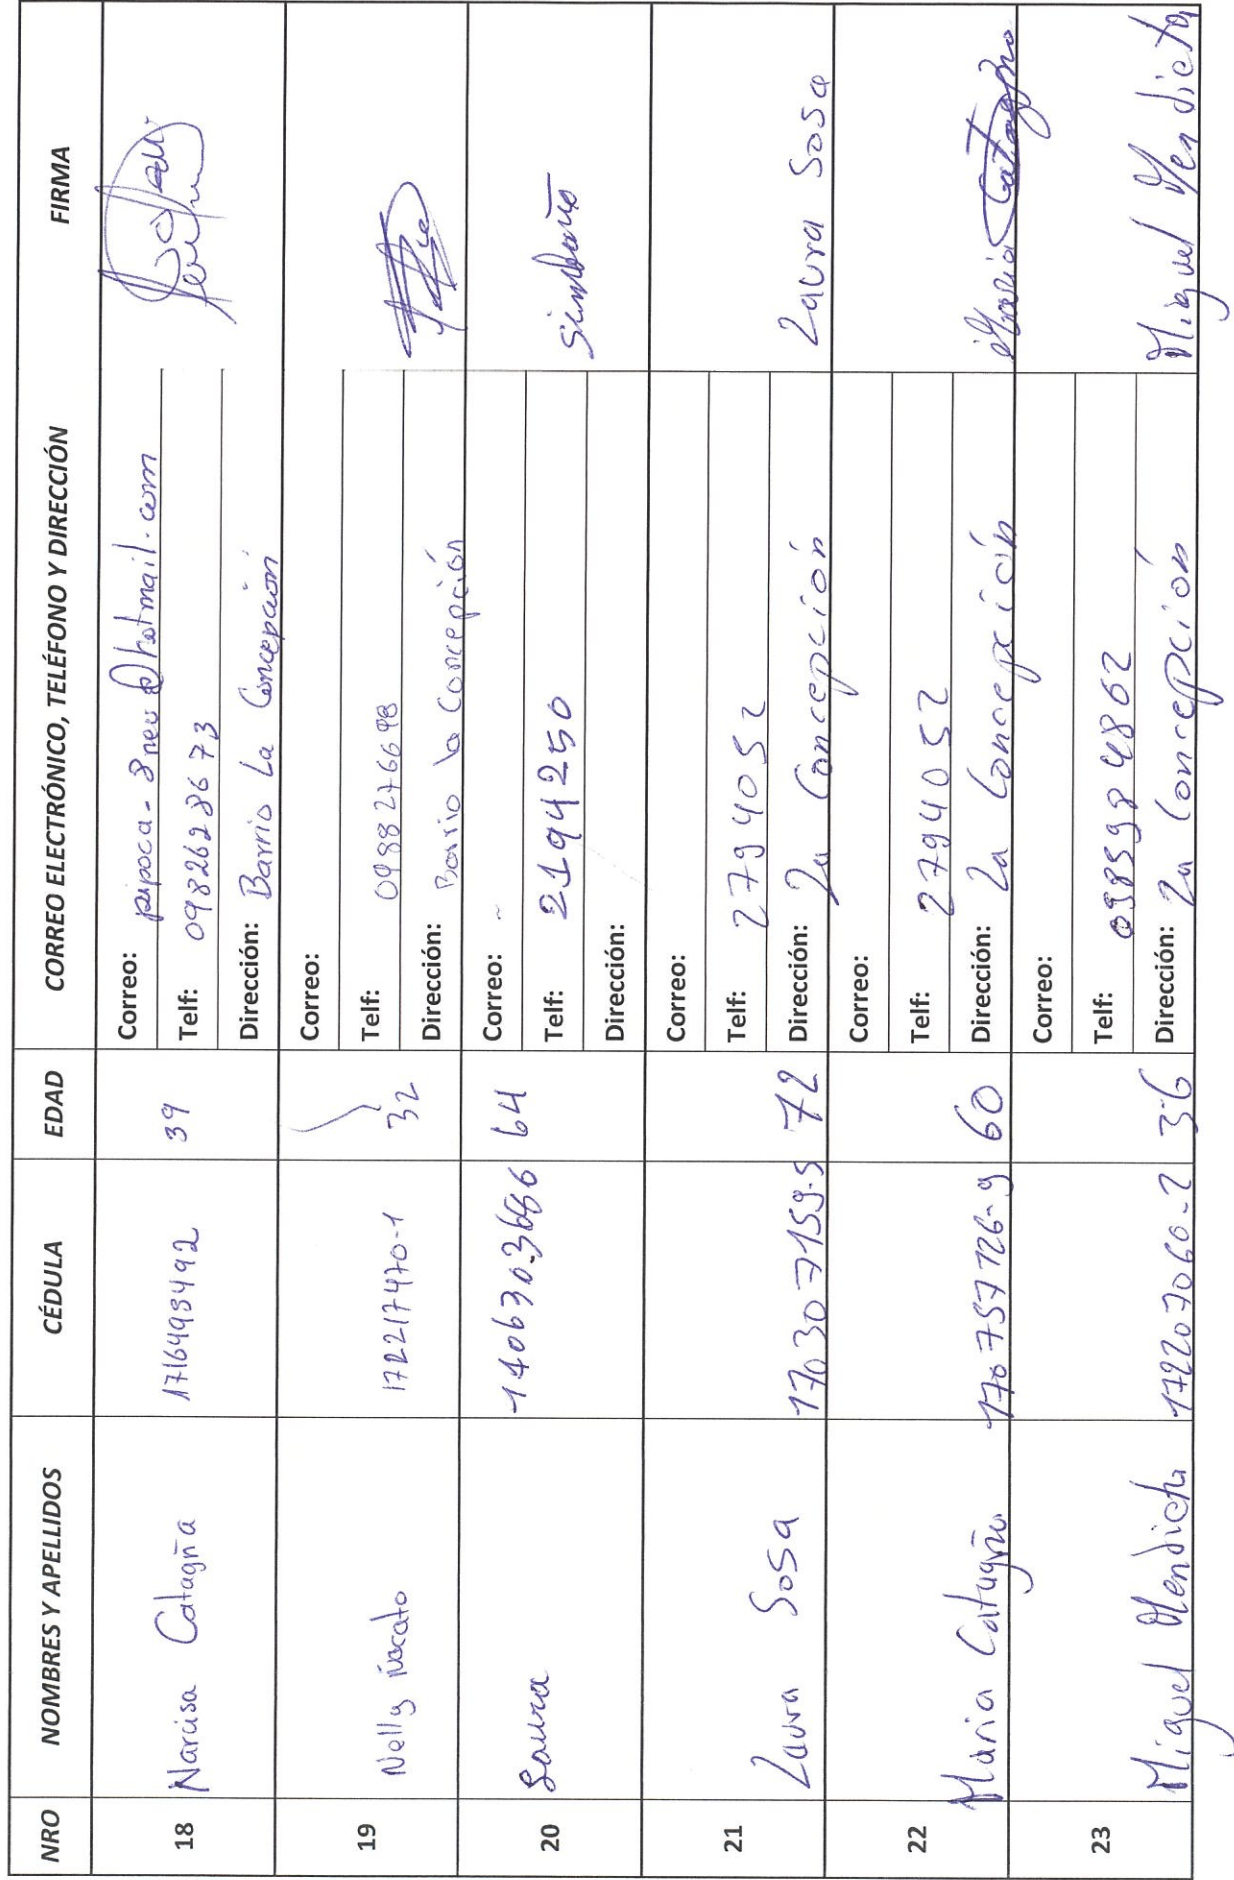 NRO NOMBRES Y APELLIDOS CÉDULA EDAD CORREO ELECTRÓNICO, TELÉFONO Y DIRECCIÓN FIRMA
18 Narcisa Catagña 1716493492 39
Correo: pipoca-8neu@hotmail.com
Telf: 0982628673
Dirección: Barrio La Concepción
19 Nelly 172217470-1 32
Correo:
Telf: 0988276698
Dirección: Barrio la Concepción
20 Laura 64
Correo:
Telf: 2194250
Dirección:
Simbaño
21 Laura Sosa 170307159-5 72
Correo:
Telf: 2794052
Dirección: La Concepción
Laura Sosa
22 Maria Catugño 170757126-9 60
Correo:
Telf: 2794052
Dirección: La Concepción
Maria Catagño
23 Miguel Mendieta 172207060-2 36
Correo:
Telf: 0985984862
Dirección: La Concepción
Miguel Mendieta